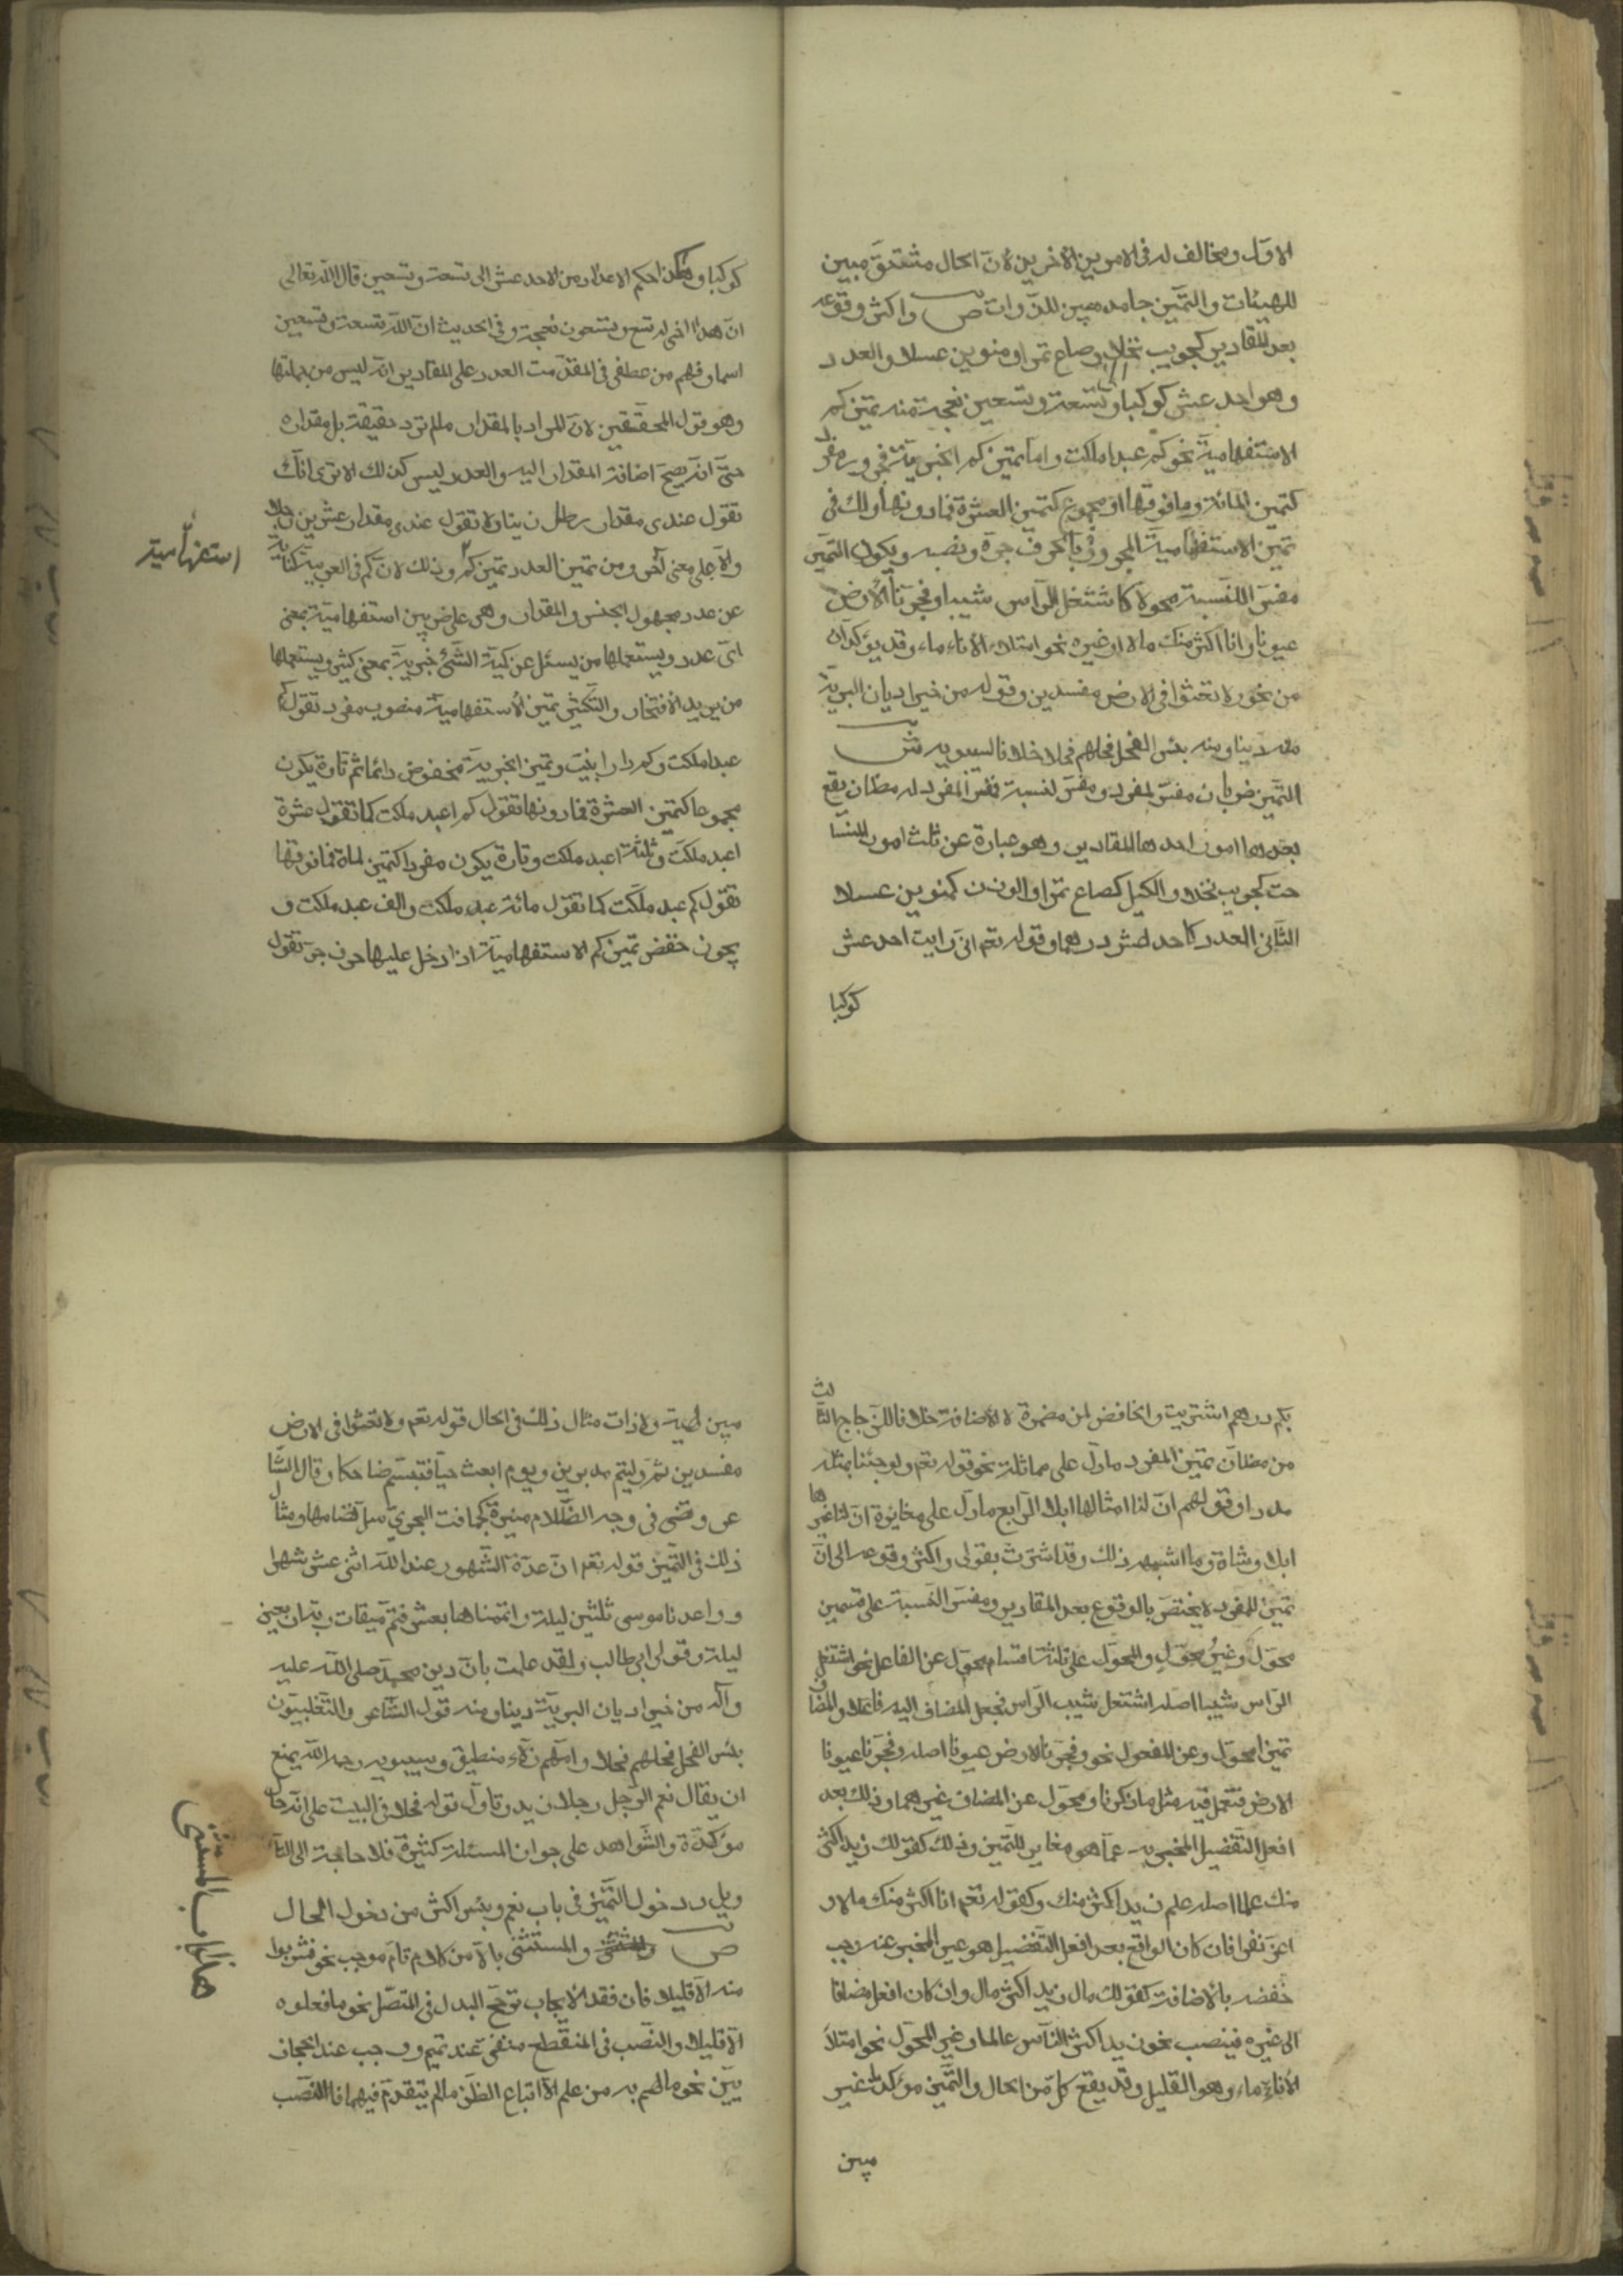 الاول ومخالف له فى الامرين الاخرين لان الحال مشتق مبين
للهيئات والتميز جامد مبين للذوات ص واكثر وقوعه
بعد المقادير كجريب نخلا وصاع تمرا ومنوين عسلا والعدد
وهو احد عشر كوكبا وتسعة وتسعين نعجة منه تميز كم
الاستفهامية نحو كم عبدا ملكت واما تميز كم الخبرية فمجرور مفرد
كتميز المائة وما فوقها او مجموع كتميز العشرة فما دونها ولك فى
تميز الاستفهامية المجرورة بالحرف جره ونصبه ويكون التميز
مفسر اللنسبة محولا كاشتعل الرأس شيبا وفجرنا الارض
عيونا وانا اكثر منك مالا او غيره نحو امتلاء الاناء ماء وقد يؤكدان
من نحو ولا تعثوا فى الارض مفسدين وقوله من خير اديان البرية
دينا ومنه بئس الفحل فحلهم فحلا خلافا لسيبويه ش
التميز ضربان مفسر لمفرد ومفسر لنسبة فمفسر المفرد له مظان يقع
بعدها امور احدها المقادير وهو عبارة عن ثلث امور المسا
حت كجريب نخلا والكيل كصاع تمرا والوزن كمنوين عسلا
الثانى العدد كاحد عشر درهما وقوله تعم انى رايت احد عشر
كوكبا
كوكبا وهكذا حكم الاعداد من الاحد عشر الى تسعة وتسعين قال الله تعالى
ان هذا اخى له تسع وتسعون نعجة وفى الحديث ان لله تسعة وتسعين
اسما وفهم من عطفى فى المقدمت العدد على المقادير انه ليس من جملتها
وهو قول المحققين لان المراد بالمقدار ما لم ترد حقيقة بل مقداره
حتى انه يصح اضافة المقدار اليه والعدد ليس كذلك الا ترى انك
تقول عندى مقدار رطل زيتا ولا تقول عندى مقدار عشرين رجلا
والا على معنى آخر ومن تميز العدد تميز كم وذلك لان كم فى العربية كناية
استفهامية
عن عدد مجهول الجنس والمقدار وهى على ضربين استفهامية بمعنى
اى عدد ويستعملها من يسئل عن كمية الشئ وخبرية بمعنى كثير ويستعملها
من يريد الافتخار والتكثير تميز الاستفهامية منصوب مفرد تقول كم
عبدا ملكت وكم دارا بنيت وتميز الخبرية مخفوض دائما ثم تارة يكون
مجموعا كتميز العشرة فما دونها تقول كم اعبد ملكت كما تقول عشرة
اعبد ملكت وثلثة اعبد ملكت وتارة يكون مفردا كتميز المأة فما فوقها
تقول كم عبد ملكت كما تقول مائة عبد ملكت والف عبد ملكت و
يجوز خفض تميز كم الاستفهامية اذا دخل عليها حرف جر تقول
بكم درهم اشتريت والخافض له من مضمرة لا الاضافة خلافا للزجاج الثالث
من مظان تميز المفرد ما دل على مماثلة نحو قوله تعم ولو جئنا بمثله
مددا وقولهم ان لنا امثالها ابلا الرابع ما دل على مغايرة ان لنا غيرها
ابلا وشاة وما اشبهه ذلك وقد اشرت بقولى واكثر وقوعه الى ان
تميز المفرد لا يختص بالوقوع بعد المقادير ومفسر النسبة على قسمين
محول وغير محول والمحول على ثلثة اقسام محول عن الفاعل نحو اشتعل
الراس شيبا اصله اشتعل شيب الراس فجعل المضاف اليه فاعلا والمضاف
تميزا محول وعن المفعول نحو وفجرنا الارض عيونا اصله وفجرنا عيونا
الارض فتعمل فيه مثل ما ذكرنا ومحول عن المضاف غيرهما وذلك بعد
افعل التفضيل المخبر به عما هو مغاير للتميز وذلك كقولك زيد اكثر
منك علما اصله علم زيد اكثر منك وكقوله تعم انا اكثر منك مالا و
اعز نفرا فان كان الواقع بعد افعل التفضيل هو عين المخبر عنه وجب
خفضه بالاضافة كقولك مال زيد اكثر مال وان كان افعل مضافا
الى غيره فينصب نحو زيد اكثر الناس عالما وغير المحول نحو امتلأ
الاناء ماء وهو القليل وقد يقع كل من الحال والتميز مؤكدا غير
مبين
مبين لهيئة ولا ذات مثال ذلك فى الحال قوله تعم ولا تعثوا فى الارض
مفسدين ثم وليتم مدبرين ويوم ابعث حيا فتبسم ضاحكا وقال الشا
عر وتضئ فى وجه الظلام منيرة كجمانت البحرى سل نظامها ومثال
ذلك فى التميز قوله تعم ان عدة الشهور عند الله اثنى عشر شهرا
وواعدنا موسى ثلثين ليلة واتممناها بعشر فتم ميقات ربه اربعين
ليلة وقول ابى طالب ولقد علمت بان دين محمد صلى الله عليه
وآله من خير اديان البرية دينا ومنه قول الشاعر والتغلبيون
بئس الفحل فحلهم فحلا وامهم زلاء منطيق وسيبويه رحمه الله يمنع
ان يقال نعم الرجل رجلا زيد وتاول قوله فحلا فى البيت على انه حال
مؤكدة والشواهد على جواز المسئلة كثيرة فلا حاجة الى التا
ويل ودخول التميز فى باب نعم وبئس اكثر من دخول الحال
ص والمستثنى بالا من كلام تام موجب نحو فشربوا
هذا باب المستثنى
منه الا قليلا فان فقد الايجاب ترجح البدل فى المتصل نحو ما فعلوه
الا قليلا والنصب فى المنقطع منفى عند تميم ووجب عند الحجاز
يين نحو ما لهم به من علم الا اتباع الظن ما لم يتقدم فيهما فالنصب